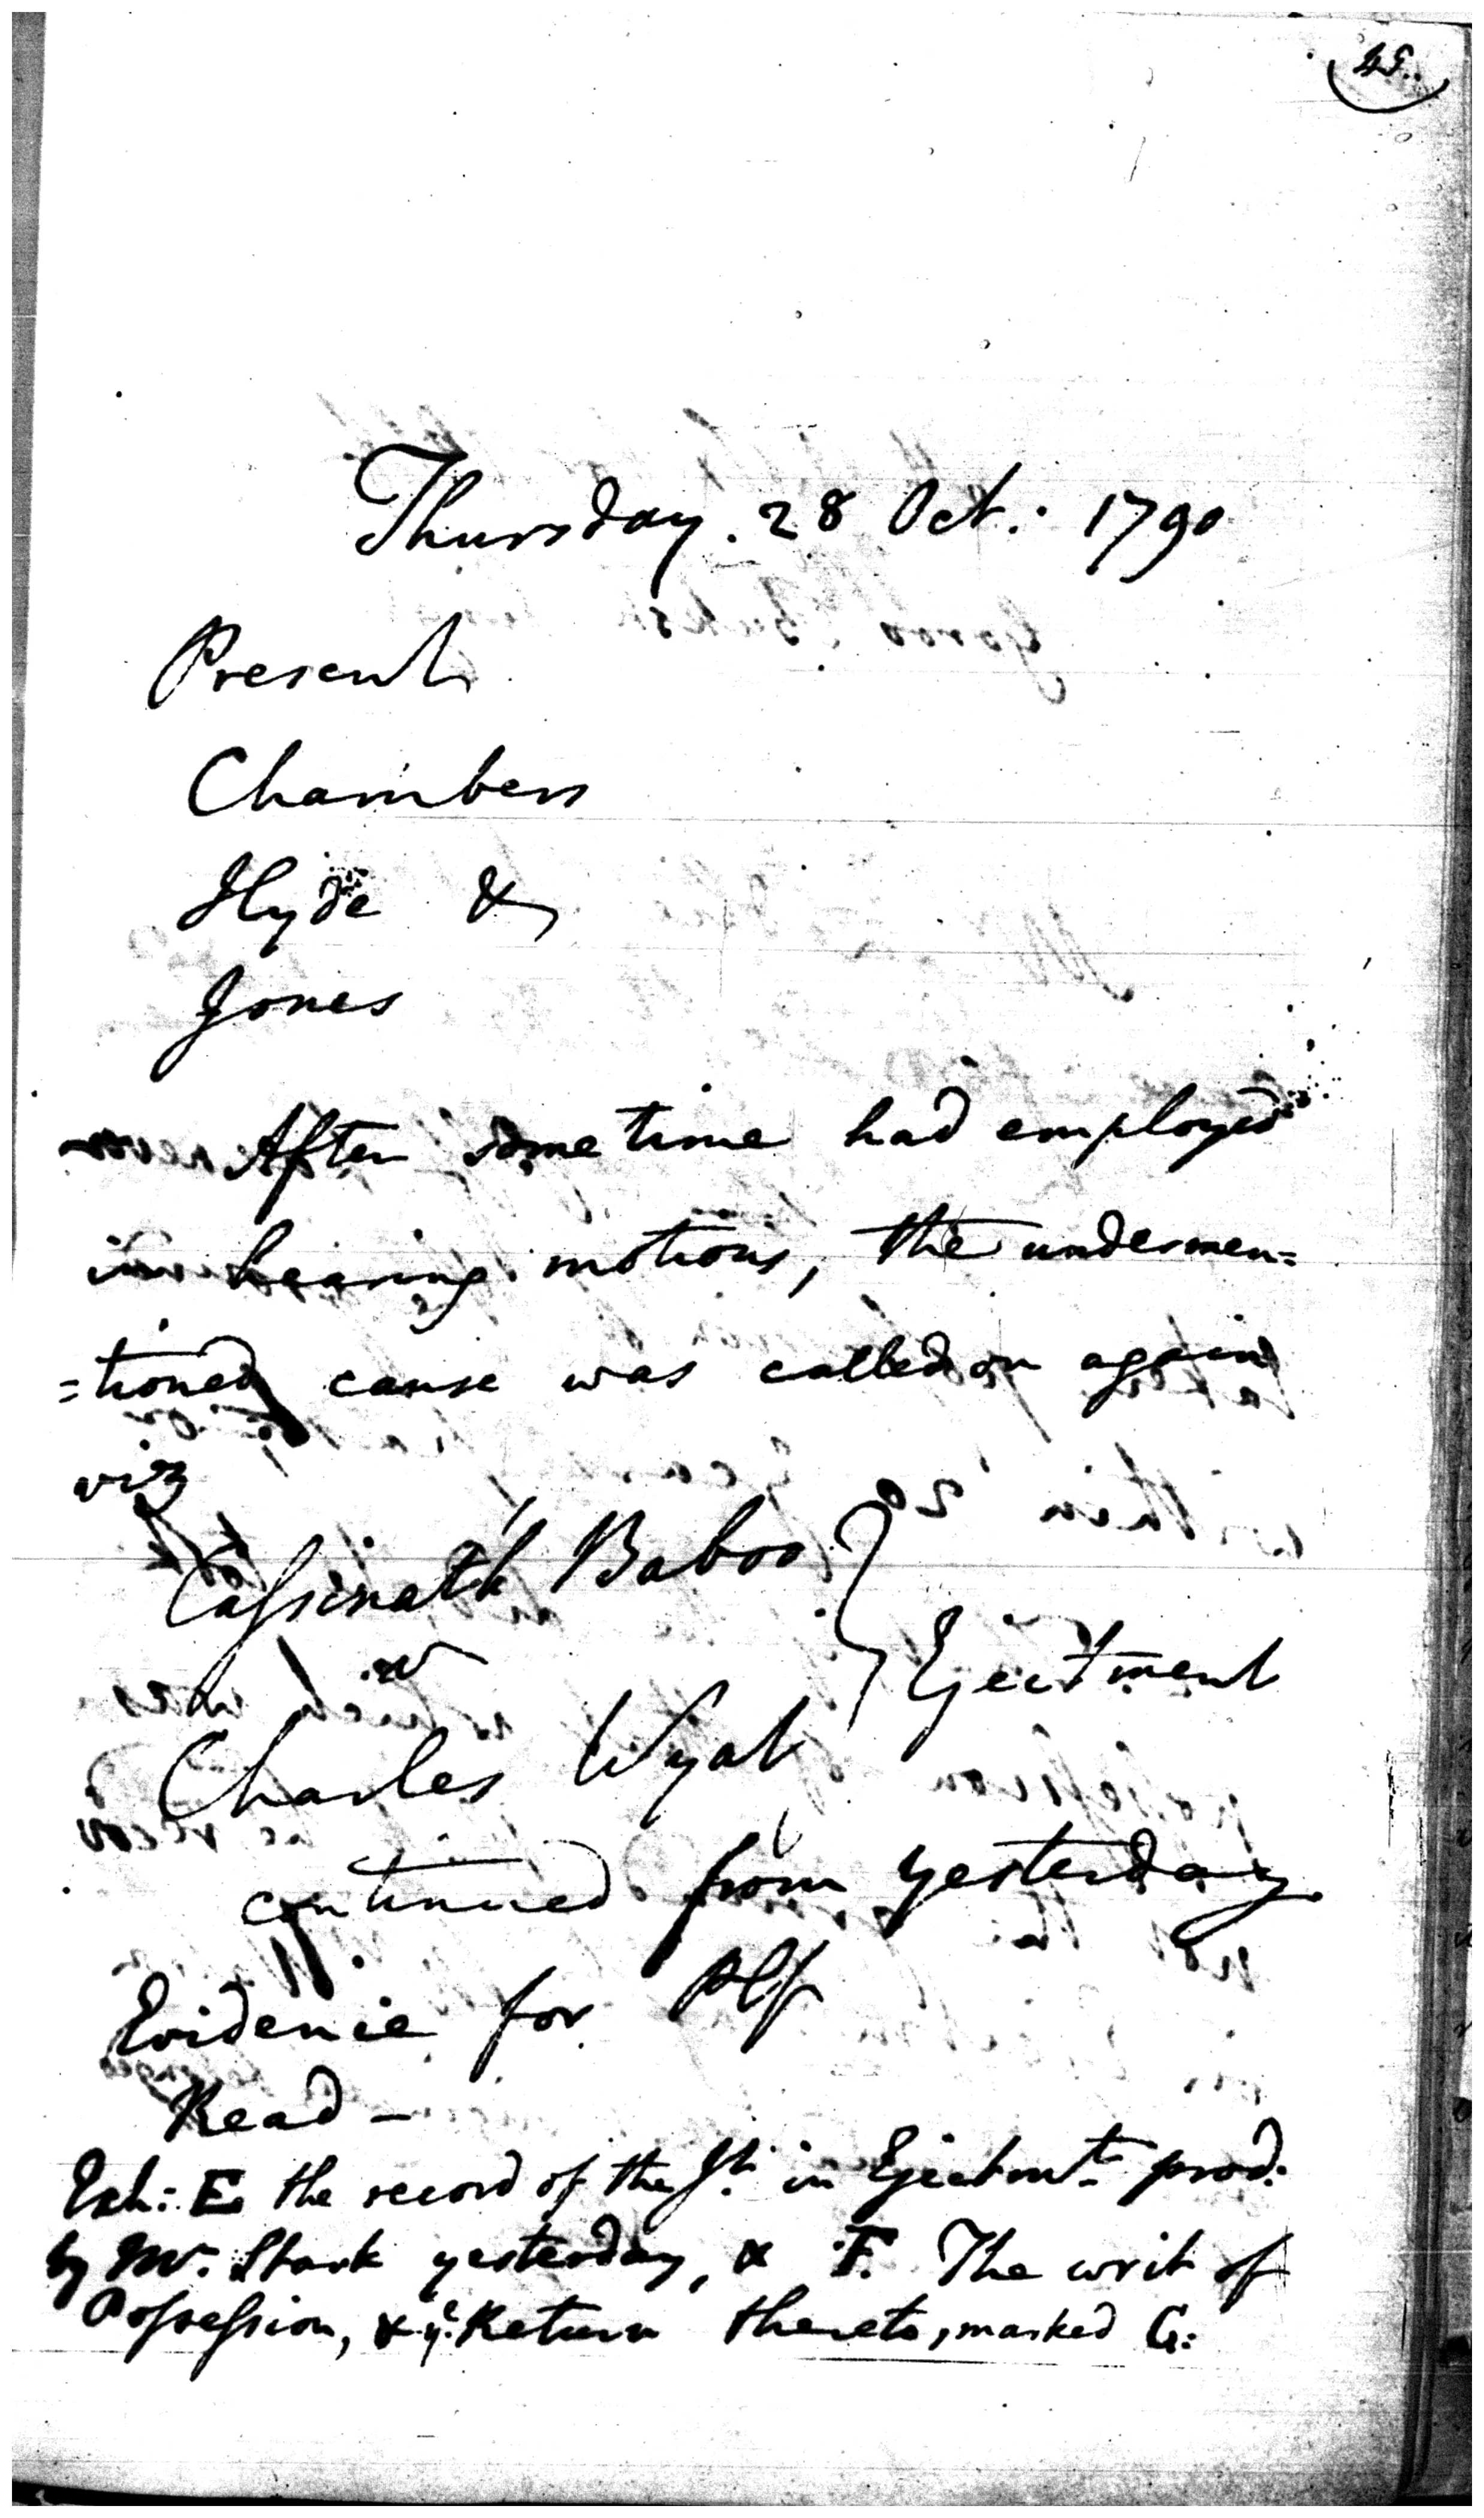 45.
Thursday. 28 Oct: 1790
Present
Chambers
Hyde &
Jones
After some time had employed
in hearing motions, the undermen=
=tioned cause was called on again
viz
Cassinath Baboo } Ejectment
v
Charles Wyat
continued from yesterday
Evidence for Plf
Read —
Exh: E the record of the Jt. in Ejectmt. prod:
by Mr. Stark yesterday, & F. The writ of
Possession, & ye. Return thereto, marked G: